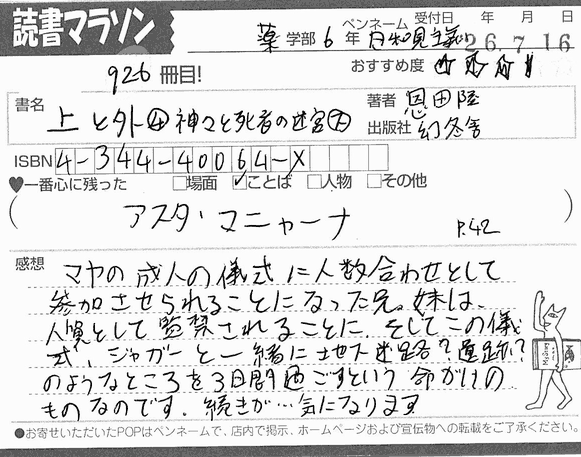 読書マラソン
ペンネーム 受付日 年 月 日
薬 学部 6 年 日和見主義 26.7.16
926 冊目! おすすめ度
書名 上と外④神々と死者の迷宮 下
著者 恩田陸
出版社 幻冬舎
ISBN 4-344-40064-X
♥一番心に残った □場面 ☑ことば □人物 □その他
( アスタ・マニャーナ P.42 )
感想 マヤの成人の儀式に人数合わせとして
参加させられることになった兄。妹は、
人質として監禁されることに。そしてこの儀
式、ジャガーと一緒に地下迷路?遺跡?
のようなところを3日間過ごすという命がけの
ものなのです。続きが…気になります
●お寄せいただいたPOPはペンネームで、店内で掲示、ホームページおよび宣伝物への転載をご了承ください。